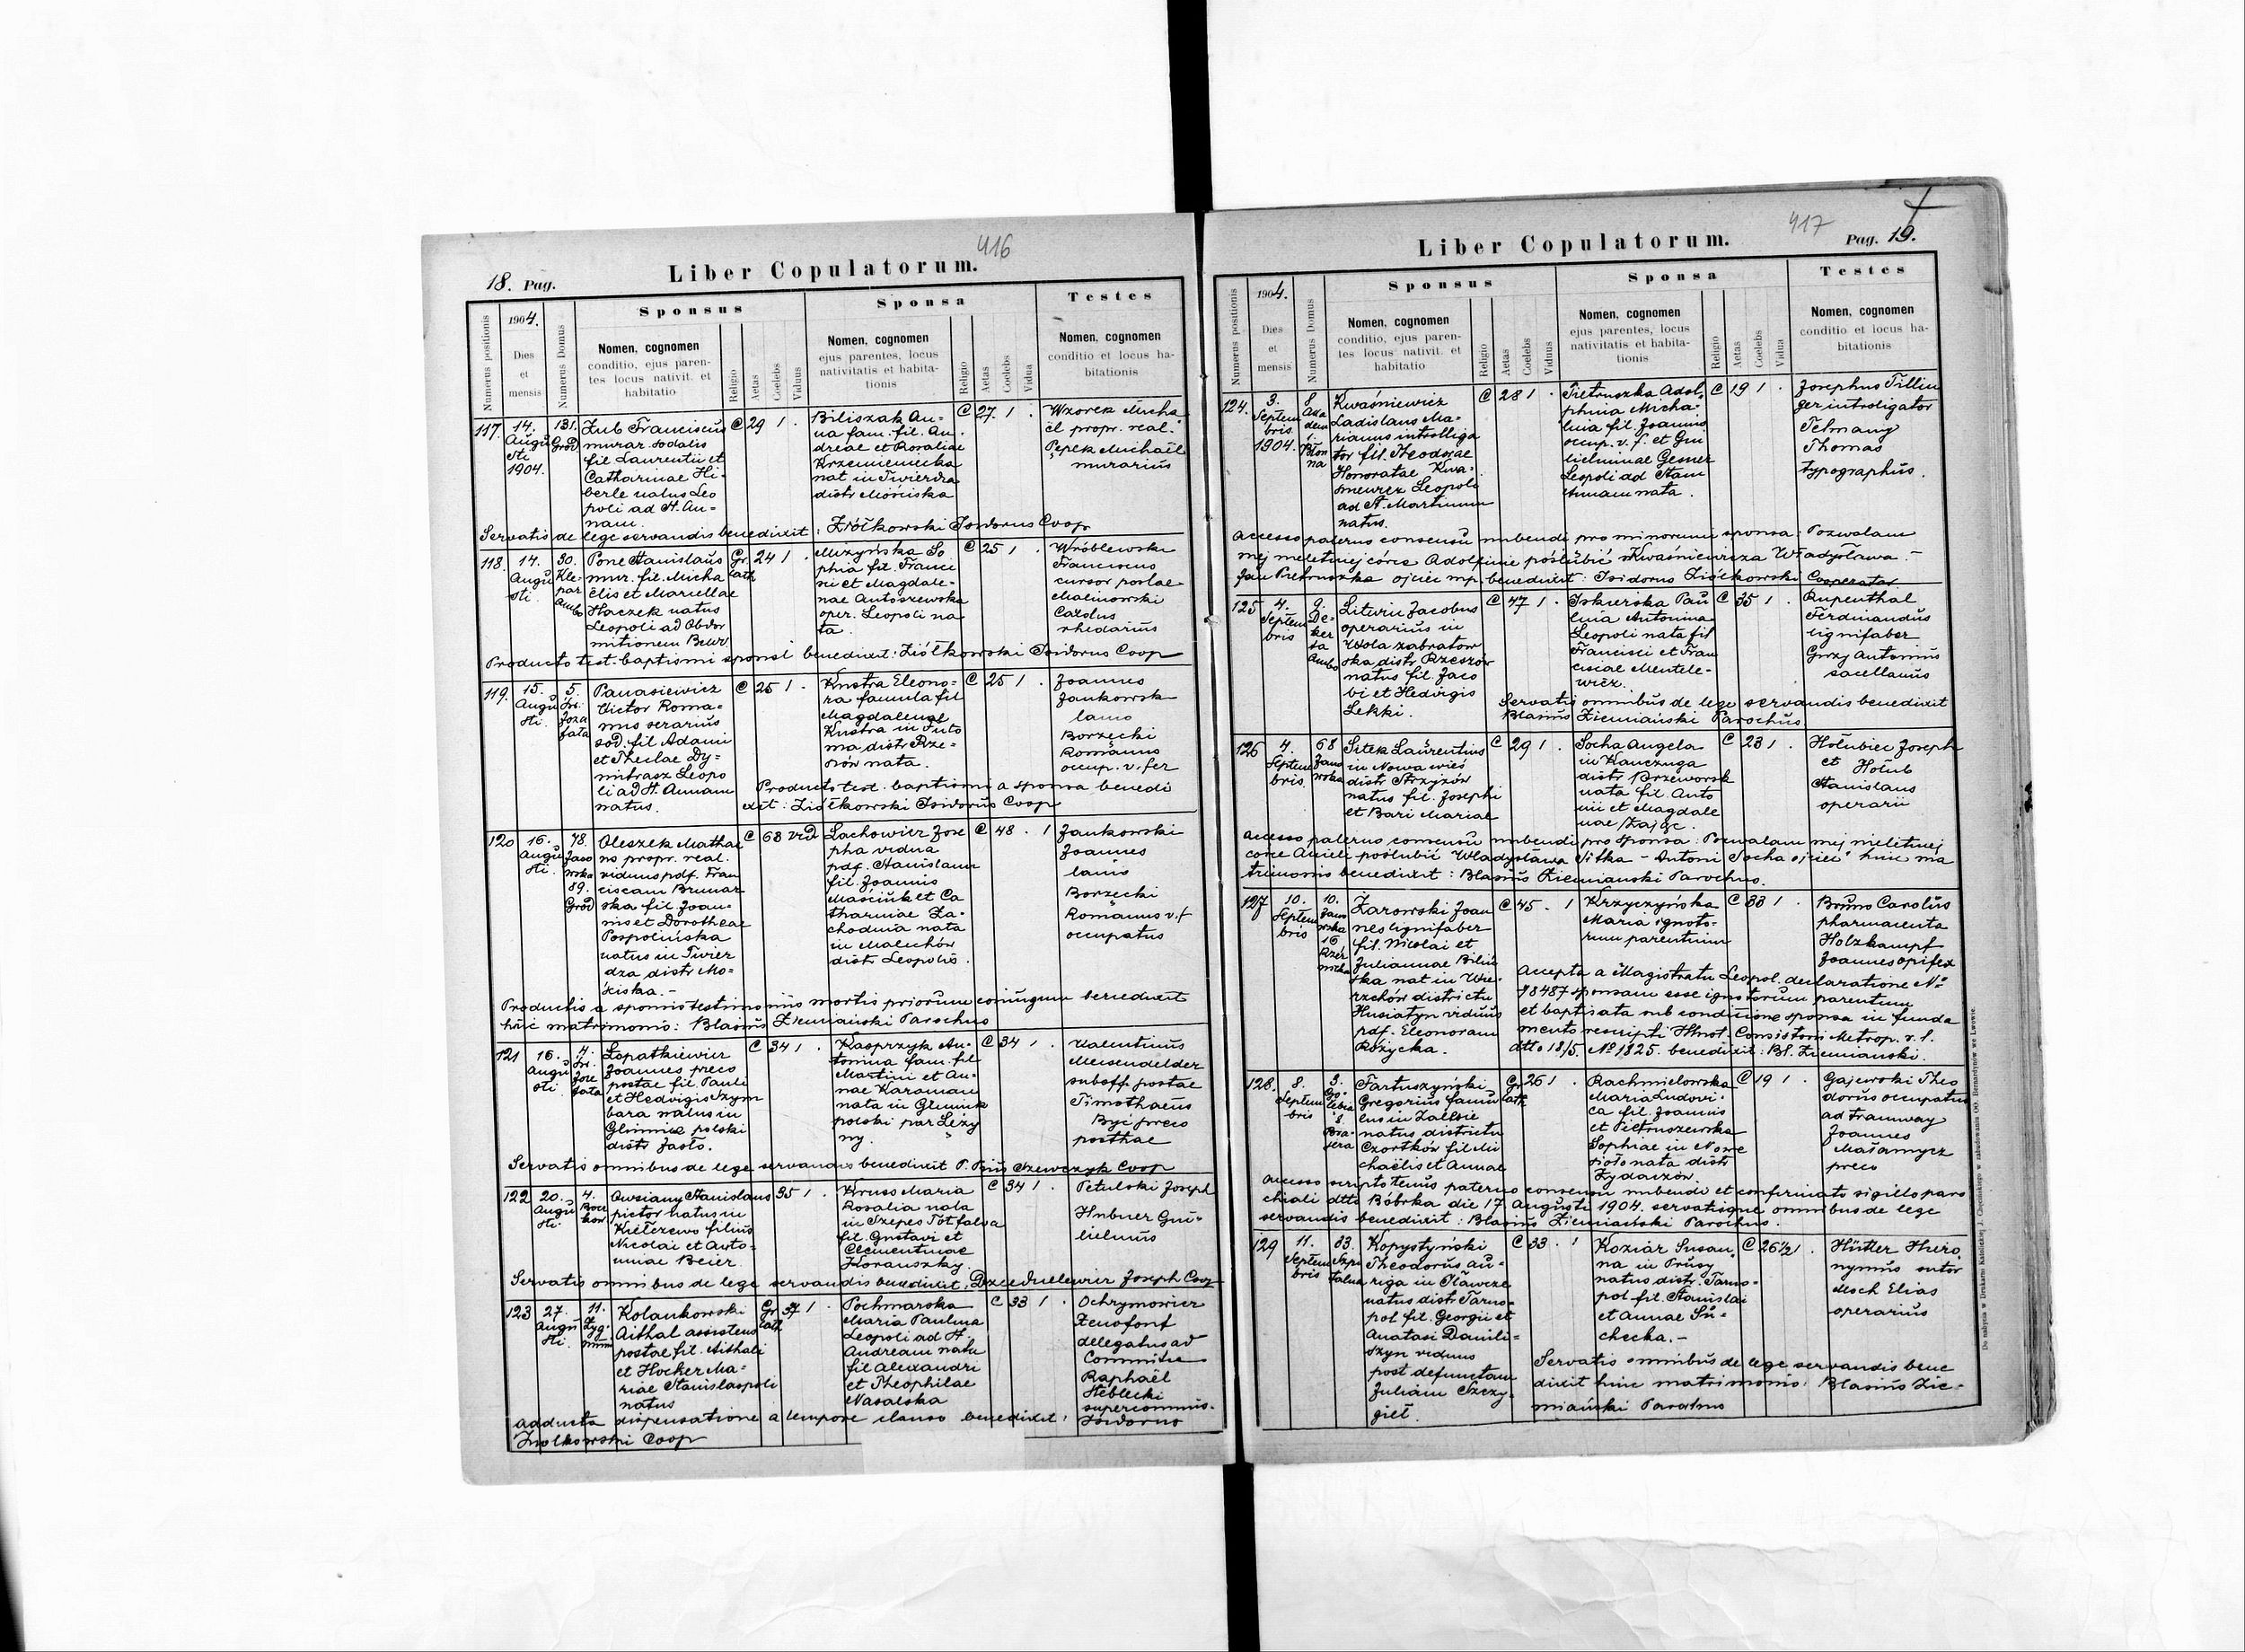 416
18. Pag.
Liber Copulatorum.
Numerus positionis
1904.
Dies
et
mensis
Numerus Domus
Sponsus
Nomen, cognomen
conditio, ejus paren-
tes locus nativit. et
habitatio
Religio
Aetas
Coelebs
Viduus
Sponsa
Nomen, cognomen
ejus parentes, locus
nativitatis et habita-
tionis
Religio
Aetas
Coelebs
Vidua
Testes
Nomen, cognomen
conditio et locus ha-
bitationis
117.
14.
Augu
sti
1904.
131.
Gród
Zub Franciscus
murar. sodalis
fil. Laurentii et
Catharinae Hi-
berle natus Leo
poli ad St. An-
nam.
C 29 1 .
Biliszak An-
na fam. fil. An-
dreae et Rosaliae
Krzemieniecka
nat in Twierdza
distr Mościska
C 27 1 .
Wzorek Micha
ël propr. real.
Pepek Michaël
murarius
Servatis de lege servandis benedixit: Ziółkowski Isidorus Coop
118.
14.
Augu
sti.
30.
Kle-
par
Pone Stanislaus
mur. fil. Micha
ëlis et Mariellae
Haczek natus
Leopoli ad Obdor
mitionem
Gr.
cath
24 1 .
Mizyńska So
phia fil. Franci
sci et Magdale-
nae Antoszewska
oper. Leopoli na
ta.
C 25 1 .
Wróblewski
Franciscus
cursor postae
Malinowski
Carolus
rhedarius
Producto test. baptismi sponsi benedixit: Ziółkowski Isidorus Coop
119.
15.
Augu
sti.
5.
Św.
Joza
fata
Panasiewicz
Victor Roma-
nus serarius
sod. fil Adami
et Theclae Dy-
mitrasz Leopo
li ad St. Annam
natus.
C 25 1 .
Kustra Eleono-
ra famula fil
Magdalenae
Kustra in Futo
ma distr Rze-
szów nata.
C 25 1 .
Joannes
Jankowski
lanio
Borzęcki
Romanus
occup. v. fer
Producto test. baptismi a sponsa benedi
xit: Ziółkowski Isidorus Coop
120
16.
Augu
sti.
78.
Jano
wska
89.
Gród
Oleszek Mathae
us propr. real.
viduus pdf. Fran
ciscam Brunar
ska fil. Joan-
nis et Dorotheae
Pospolińska
natus in Twier
dza distr Mo-
ściska.-
C 68 vid
Lachowicz Jose
pha vidua
pdf. Stanislaum
fil. Joannis
Maściuk et Ca
tharinae Za-
chodnia nata
in Malechów
distr Leopolis.
C 48 . 1
Jankowski
Joannes
lanio
Borzęcki
Romanus v. f
occupatus
Productis a sponsis testimoniis mortis priorum conjugum benedixit
huic matrimonio: Blasius Ziemiański Parochus
121
16.
Augu
sti
7.
Św.
Joze
fata
Łopatkiewicz
Joannes preco
postae fil. Pauli
et Hedvigis Szym
bara natus in
Glinnik polski
distr Jasło.
C 34 1 .
Kasprzyk An-
tonina fam. fil
Martini et An-
nae Karaman
nata in Glinnik
polski par Leży
ny.
C 34 1 .
Valentinus
Meisendelder
suboff. postae
Timothaeus
Być preco
posthae
Servatis omnibus de lege servandis benedixit P. Pius Szewczyk Coop
122
20.
Augu
sti.
4.
Owsiany Stanislaus
pictor natus in
Kiełczewo filius
Nicolai et Anto-
niae Beier
35 1 .
Kruss Maria
Rosalia nata
in Szepes Tótfalva
fil. Gustavi et
Clementinae
Korauszky.
C 34 1 .
Petulski Joseph
Hubner Gui-
lielmus
Servatis omnibus de lege servandis benedixit: Dziedzielewicz Joseph Coop
123
27.
Augu
sti.
11.
Zyg-
mun
Kolankowski
Aithal assistens
postae fil. Aithali
et Hocker Ma-
riae Stanislaopoli
natus
Gr.
cath
37 1 .
Pochmarska
Maria Paulina
Leopoli ad St.
Andream nata
fil Alexandri
et Theophilae
Nasalska
C 33 1 .
Ochrymowicz
Zenofont
delegatus ad
Committe
Raphaël
Steblecki
supercommis.
adducta dispensatione a tempore clauso benedixit: Isidorus
Ziolkowski Coop
417
Liber Copulatorum.
Pag. 19.
Numerus positionis
1904.
Dies
et
mensis
Numerus Domus
Sponsus
Nomen, cognomen
conditio, ejus paren-
tes locus nativit. et
habitatio
Religio
Aetas
Coelebs
Viduus
Sponsa
Nomen, cognomen
ejus parentes, locus
nativitatis et habita-
tionis
Religio
Aetas
Coelebs
Vidua
Testes
Nomen, cognomen
conditio et locus ha-
bitationis
124.
3.
Septem
bris
1904.
8
Aka
dem
1.
Błon
na
Kwaśniewicz
Ladislaus Ma-
rianus introlliga
tor fil. Theodorae
Honoratae Kwa-
śniewicz Leopoli
ad St. Martinum
natus.
C 28 1 .
Pietruszka Adol-
phina Micha-
lina fil. Joannis
occup. v. f. et Gui
lielminae Gesner
Leopoli ad Sanc
Annam nata.
C 19 1 .
Josephus Tillin
ger introligator
Telmany
Thomas
typographus.
Accesso paterno consensu nubendi pro minorenni sponsa: Pozwalam
mej małetniej córce Adolfinie poślubić Kwaśniewicza Władysława -
Jan Pietruszka ojciec mp. benedixit: Isidorus Ziółkowski Cooperator
125
4.
Septem
bris
9.
De-
ker
ta
Litwin Jacobus
operarius in
Wola zabratow
ska distr Rzeszów
natus fil. Jaco
bi et Hedvigis
Lekki.
C 47 1 .
Iskierska Pau
lina Antonina
Leopoli nata fil
Francisci et Fran
ciscae Mentele-
wicz.
C 35 1 .
Rupenthal
Ferdinandus
lignifaber
Guzy Antonius
sacellanus
Servatis omnibus de lege servandis benedixit
Blasius Ziemiański Parochus
126
4.
Septem
bris.
68
Jano
wska
Sitek Laurentius
in Nowa wieś
distr Strzyzów
natus fil. Josephi
et Bari Mariae
C 29 1 .
Socha Angela
in Kanczuga
distr Przeworsk
nata fil. Anto
nii et Magdale
nae Zając.
C 23 1 .
Hołubiec Joseph
et Hołub
Stanislaus
operarii
Accesso paterno consensu nubendi pro sponsa: Pozwalam mej nieletniej
córce Anieli poślubić Władysława Sitka - Antoni Socha ojciec" huic ma
trimonio benedixit: Blasius Ziemianski Parochus.
127
10.
Septem
bris
10.
Jano
wska
16
Rzez
nicka
Żarowski Joan
nes lignifaber
fil. Nicolai et
Juliannae Biliń
ska nat in Wie-
rzchów districtu
Husiatyn viduus
pdf. Eleonoram
Różycka.
C 45 . 1
Krzyczyńska
Maria ignoto-
rum parentum
C 38 1 .
Bruno Carolus
pharmaceuta
Holzkampf
Joannes opifex
Accepta a Magistratu Leopol. declaratione No
78487 sponsam esse ignotorum parentum
et baptisata sub conditione sponsa in funda
mento rescripti Illmst. Consistorii Metrop. r. l.
dtto 18/5 No 1825. benedixit: Bl. Ziemianski.
128.
8.
Septem
bris
3.
Go-
łębia
8.
Fartuszyński
Gregorius famu
lus in Zalesie
natus districtu
Czortków fil Mi
chaëlis et Annae
Gr
cath
26 1 .
Rachmielowska
Maria Ludovi-
ca fil. Joannis
et Pietruszewska
Sophiae in Nowe
sioło nata distr
Żydaczów.
C 19 1 .
Gajewski Theo
dorus occupatus
ad tramway
Joannes
Małamycz
preco
accesso scripto tenus paterno consensu nubendi et confirmato sigillo paro
chiali dtto Bóbrka die 17 Augusti 1904. servatisque omnibus de lege
servandis benedixit: Blasius Ziemiański Parochus.
129
11.
Septem
bris
33.
Szpi
talna
Kopystyński
Theodorus au-
riga in Pławcze
natus distr Tarno-
pol fil. Georgii et
Anatasi Danili-
szyn viduus
post defunctam
Juliam Szczy-
gieł.
C 33 . 1
Koziar Susan-
na in Prusy
natus distr. Tarno-
pol fil. Stanislai
et Annae Su-
checka.-
C 26½ 1 .
Hütler Hiero
nymus sutor
Moch Elias
operarius
Servatis omnibus de lege servandis bene
dixit huic matrimonio: Blasius Zie-
miański Parochus
Do nabycia w Drukarni Katolickiej J. Chęcińskiego w zabudowaniu OO. Bernardynów we Lwowie.